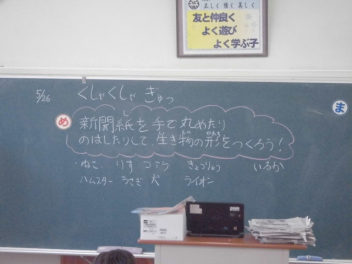 正しく 強く 美しく
友と仲良く
よく遊び
よく学ぶ子
5/26
くしゃくしゃ ぎゅっ
め
ま
新聞紙を手で丸めたり
のばしたりして、生き物の形をつくろう!
ねこ りす きょうりゅう いるか
ハムスター うさぎ 犬 ライオン